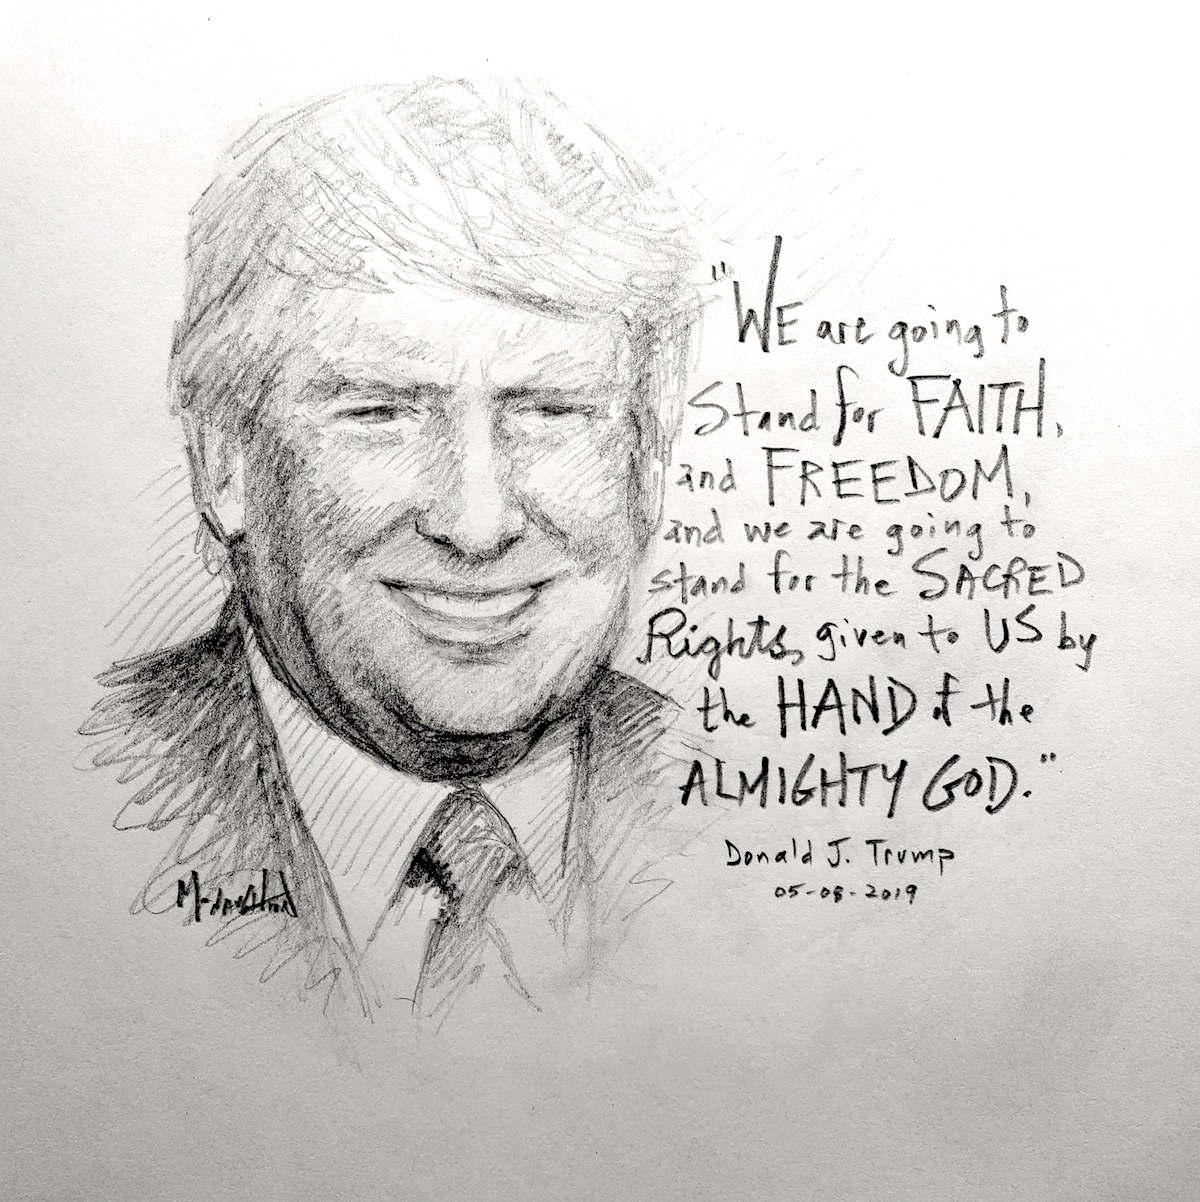 "WE are going to
Stand for FAITH,
and FREEDOM,
and we are going to
stand for the SACRED
Rights, given to US by
the HAND of the
ALMIGHTY GOD."
Donald J. Trump
05-03-2019
McNaughton